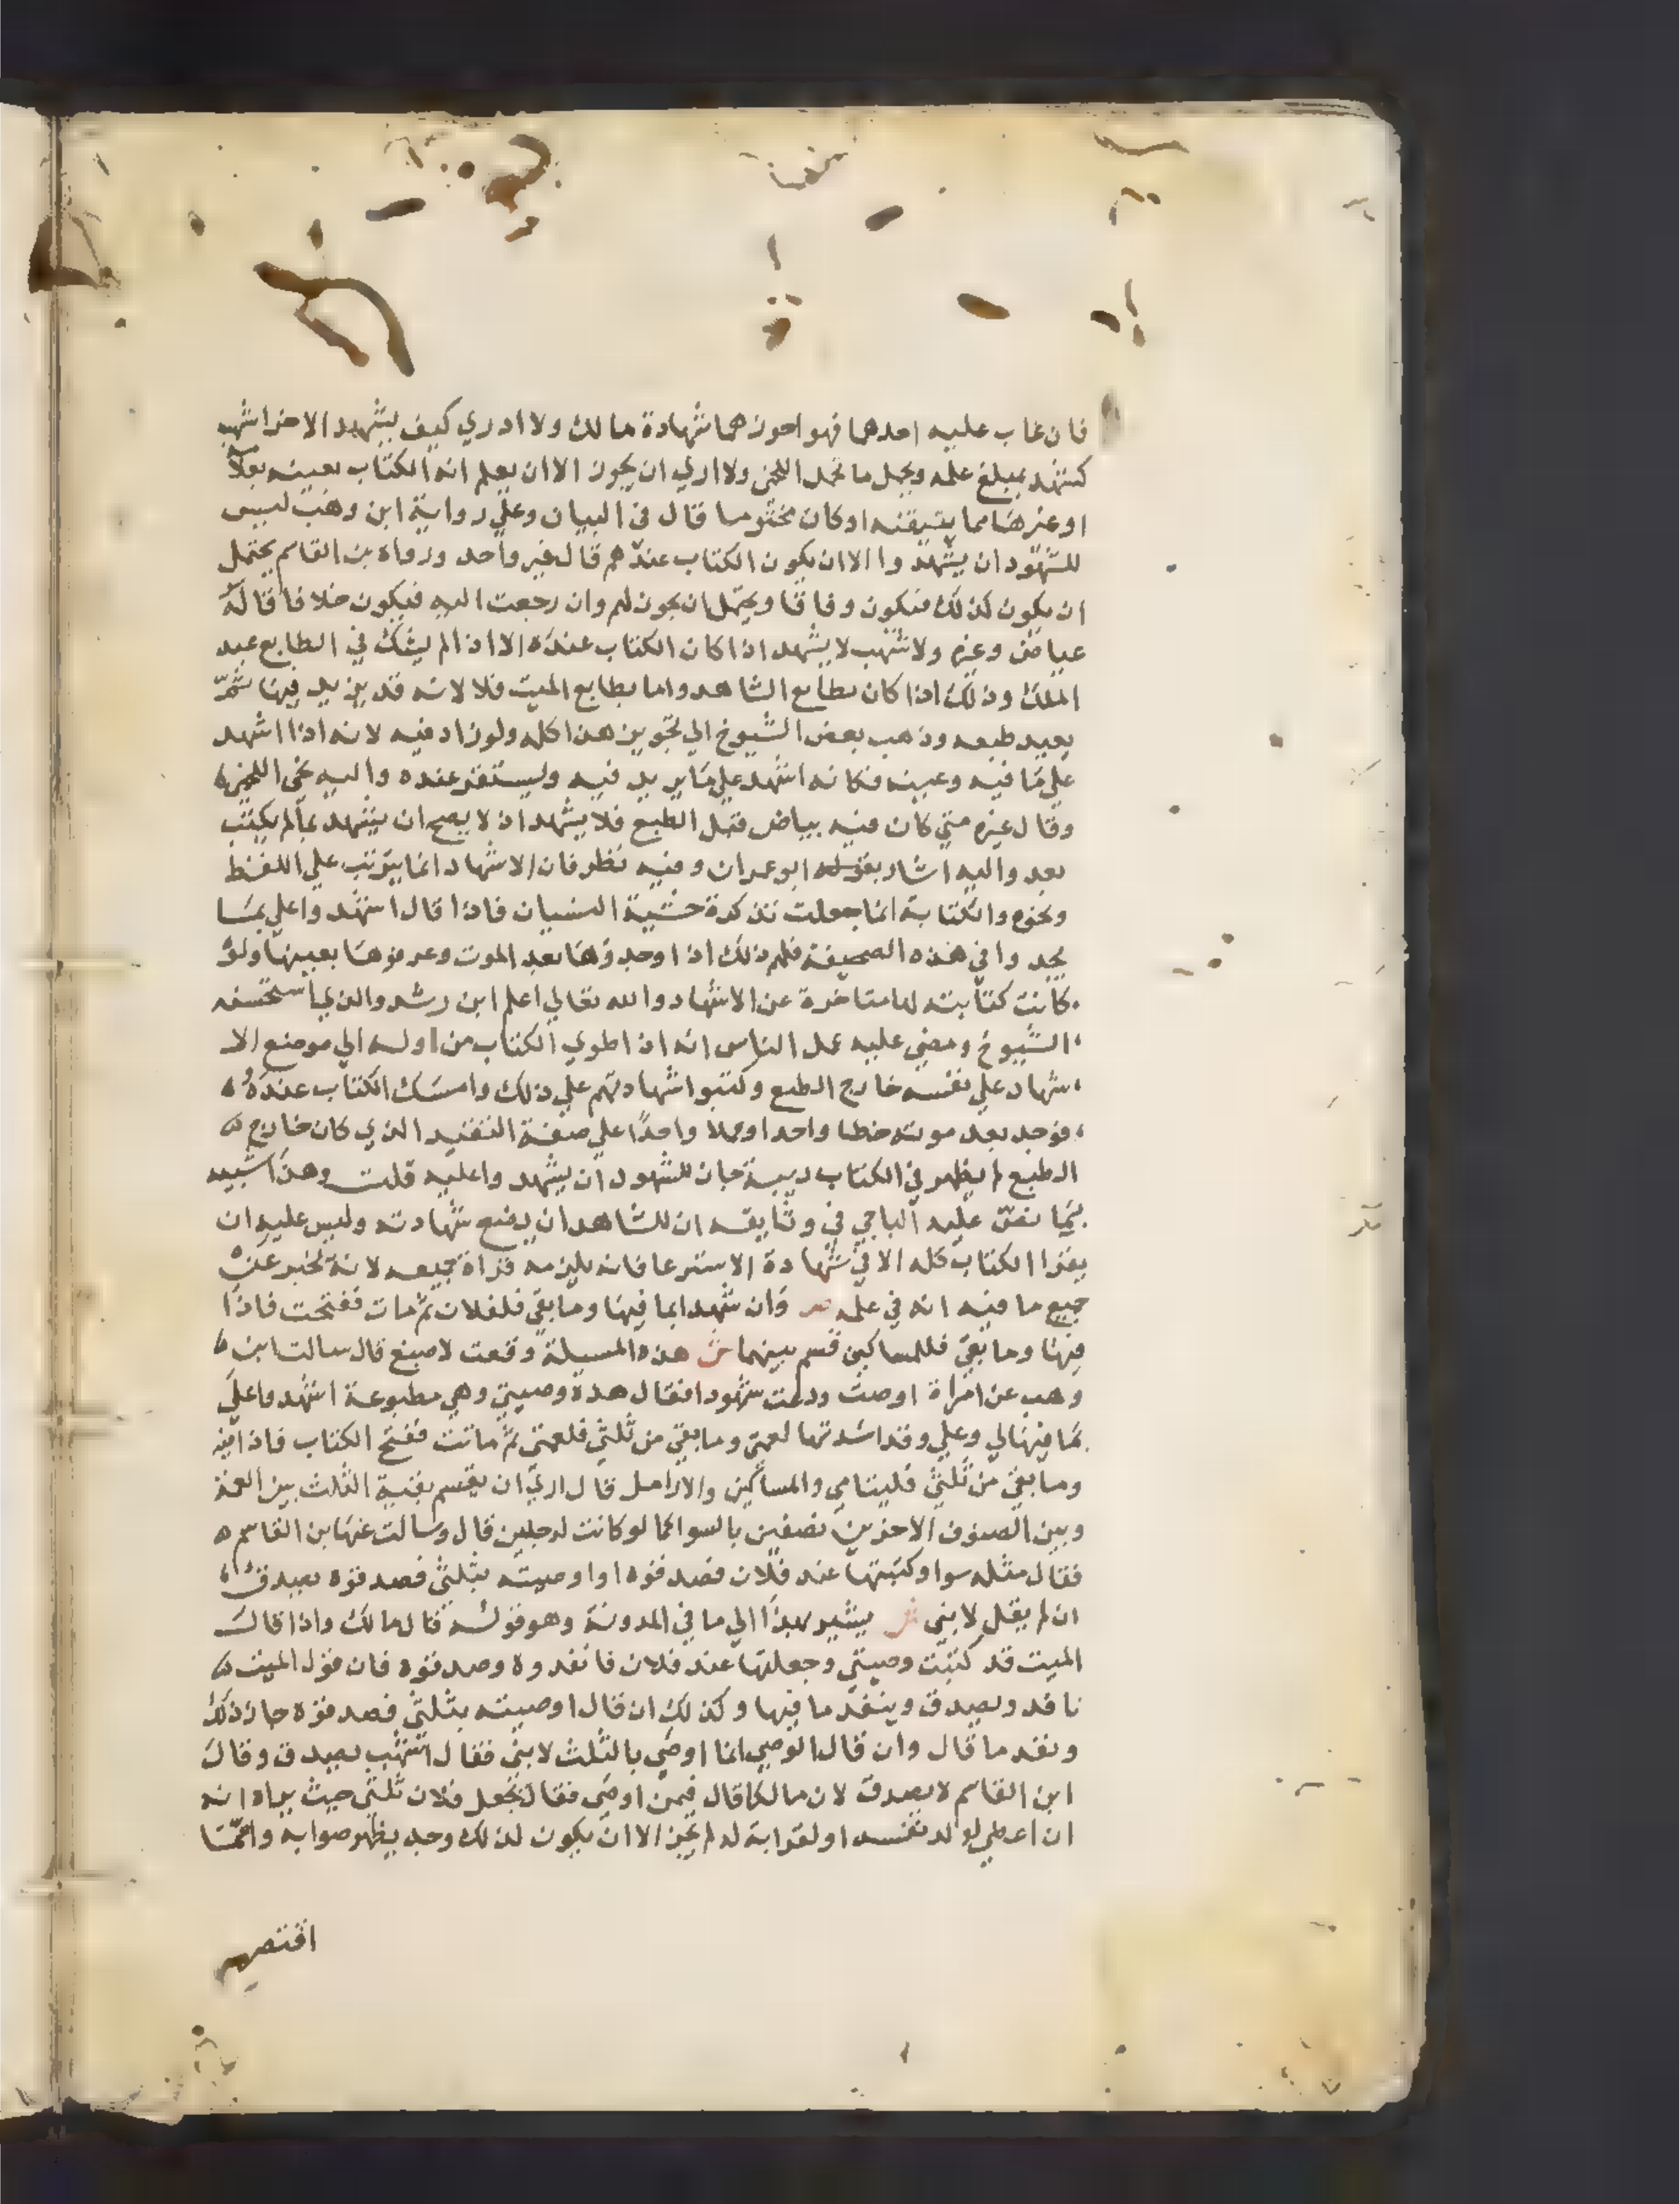 فان غاب عليه احدهما فهو احوزهما شهادة مالك ولا ادري كيف يشهد الاخر اشهب
كتشهد بمبلغ علمه ويحمل ما تحمل اللخمي ولا اري ان يجوز الا ان يعلم انه الكتاب بعينه
او غيرها مما يتيقنه او كان مختوما قال في البيان وعلي رواية ابن وهب ليس
للشهود ان يشهدوا الا ان يكون الكتاب عندهم قال غير واحد ورواه بن القاسم يحتمل
ان يكون كذلك فيكون وفاقا ويحتمل ان يجوز لهم وان رجعت اليه فيكون خلافا قاله
عياض وغيره ولاشهب لا يشهد اذا كان الكتاب عنده الا اذا لم يشك في الطابع عبد
الملك وذلك اذا كان بطابع الشاهد واما بطابع الميت فلا لانه قد يزيد فيها ثمّ
يعيد طبعه وذهب بعض الشيوخ الي تجويز هذا كله ولو زاد فيه لانه اذا اشهد
علي ما فيه وعينه فكانه اشهد علي ما يريد فيه ويستقر عنده واليه نحي اللخمي
وقال غيره متي كان فيه بياض قبل الطبع فلا يشهد اذ لا يصح ان يشهد بما لم يكتب
بعد واليه اشار بقوله ابو عمران وفيه نظر فان الاشهاد انما يترتب علي اللفظ
ونحوه والكتابة انما جعلت تذكرة خشية النسيان فاذا قال اشهدوا علي بما
تجدوا في هذه الصحيفة فلهم ذلك اذا وجدوها بعد الموت وعرفوها بعينها ولو
كانت كتابته لها متاخرة عن الاشهاد والله تعالي اعلم ابن رشد والذي استحسنه
الشيوخ ومضي عليه عمل الناس انه اذا طوي الكتاب من اوله الي موضع الا
شهاد علي نفسه خارج الطبع وكتبوا شهادتهم علي ذلك وامسك الكتاب عنده
فوجد بعد موته خطا واحدا وعملا واحدًا علي صفة التقييد الذي كان خارج
الطبع لم يظهر في الكتاب ريبة جاز للشهود ان يشهدوا عليه قلت وهذا شبيه
بما نص عليه الباجي في وثايقه ان للشاهد ان يضع شهادته وليس عليه ان
يقرا الكتاب كله الا في شهادة الاسترعا فانه يلزمه قراة جميعه لانه يخبر عن
جميع ما فيه انه في علمه ص وان شهدا بما فيها وما بقي فلفلان ثم مات ففتحت فاذا
فيها وما بقي فللمساكين قسم بينهما ش هذه المسيلة وقعت لاصبغ قال سالت ابن
وهب عن امراة اوصت ودعت شهودا فقال هذه وصيتي وهي مطبوعة اشهدوا علي
بما فيها لي وعلي وقد اسندتها لعمتي وما بقي من ثلثي فلعمتي ثم ماتت ففتح الكتاب فاذا فيه
وما بقي من ثلثي فليتامي والمساكين والارامل قال اري ان يقسم بقية الثلث بين العمة
وبين الصنوف الاخرين نصفين بالسوا كما لو كانت لرجلين قال وسالت عنها بن القاسم
فقال مثله سوا وكتبتها عند فلان فصدقوه او اوصيته بثلثي فصدقوه يصدق
ان لم يقل لابني ش يشير بهذا الي ما في المدونة وهو قوله قال مالك واذا قال
الميت قد كتبت وصيتي وجعلتها عند فلان فانفدوه وصدقوه فان قول الميت
نافد ويصدق وينفد ما فيها وكذلك ان قال اوصيته بثلثي فصدقوه جاز ذلك
ونفد ما قال وان قال الوصي انما اوصي بالثلث لابني فقال اشهب يصدق وقال
ابن القاسم لا يصدق لان مالكا قال فيمن اوصي فقال يجعل فلان ثلثي حيث يراه انه
ان اعطي لولد نفسه او لقرابة له لم يجز الا ان يكون لذلك وجه يظهر صوابه وانما
اقتصر